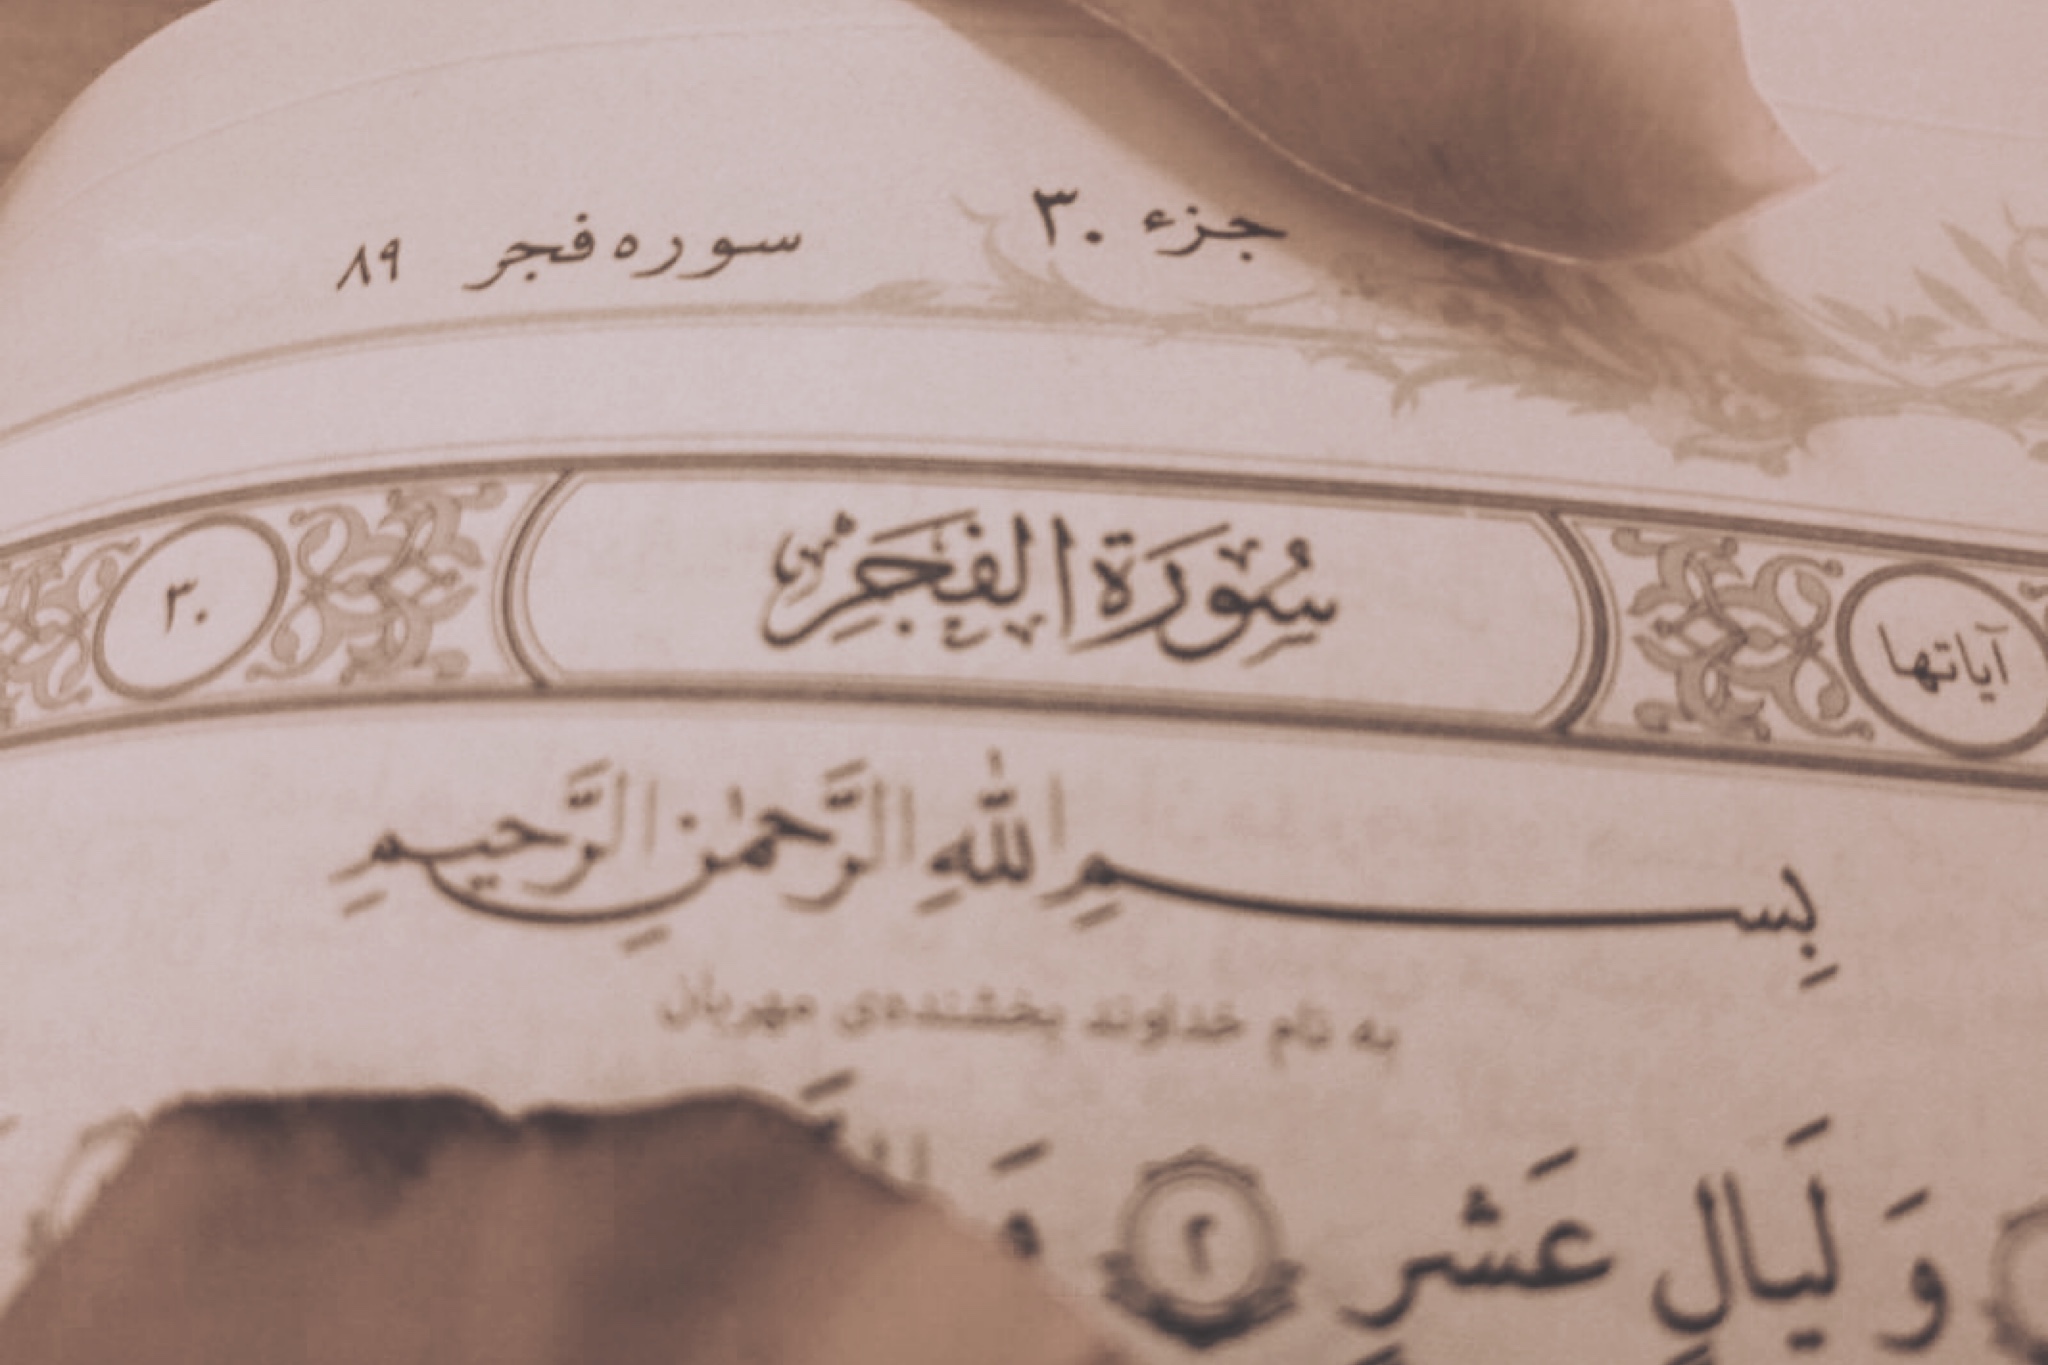 جزء ۳۰ سوره فجر ۸۹
آیاتها سُورَةُ الفَجَرِ ۳۰
بِسمِ اللّٰهِ الرَّحمٰنِ الرَّحیمِ
به نام خداوند بخشنده‌ی مهربان
وَ لَیالٍ عَشرٍ ۲ وَ